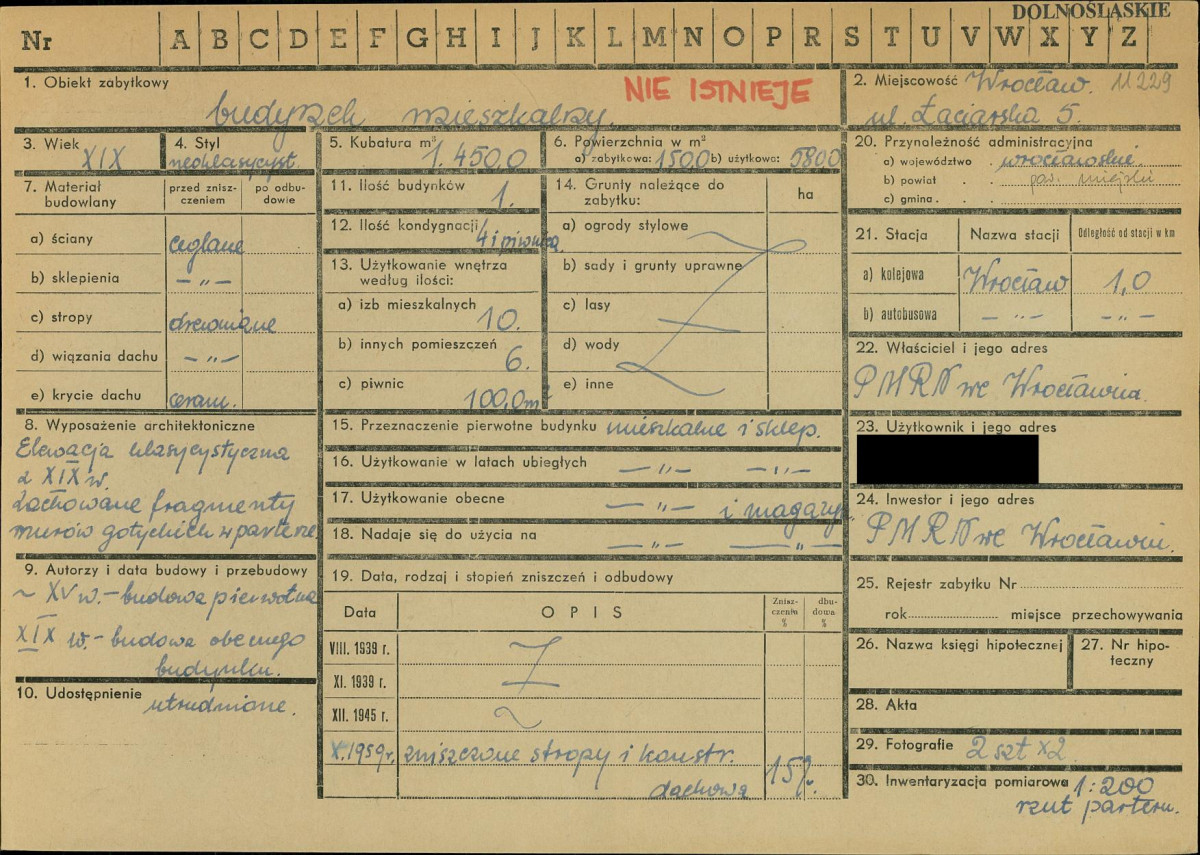 DOLNOŚLĄSKIE
Nr A B C D E F G H I J K L M N O P R S T U V W X Y Z
1. Obiekt zabytkowy
budynek mieszkalny.
NIE ISTNIEJE
2. Miejscowość Wrocław. 11229
ul. Łaciarska 5.
3. Wiek XIX
4. Styl neoklasycyst.
5. Kubatura m³ 1.450,0
6. Powierzchnia w m²
a) zabytkowa: 150,0 b) użytkowa: 580,0
20. Przynależność administracyjna
a) województwo . wrocławskie
b) powiat . . pow. miejski
c) gmina . .
7. Materiał budowlany
przed zniszczeniem
po odbudowie
a) ściany ceglane
b) sklepienia — „ —
c) stropy drewniane
d) wiązania dachu — „ —
e) krycie dachu ceram.
11. Ilość budynków 1.
12. Ilość kondygnacji 4 i piwnica
13. Użytkowanie wnętrza
według ilości:
a) izb mieszkalnych 10.
b) innych pomieszczeń 6.
c) piwnic 100,0 m²
14. Grunty należące do
zabytku:
ha
a) ogrody stylowe
b) sady i grunty uprawne
c) lasy
d) wody
e) inne
21. Stacja Nazwa stacji Odległość od stacji w km
a) kolejowa Wrocław 1,0
b) autobusowa — „ — — „ —
22. Właściciel i jego adres
PMRN we Wrocławiu.
8. Wyposażenie architektoniczne
Elewacja klasycystyczna
z XIX w.
Zachowane fragmenty
murów gotyckich w parterze
15. Przeznaczenie pierwotne budynku mieszkalne i sklep.
16. Użytkowanie w latach ubiegłych — „ — — „ —
17. Użytkowanie obecne — „ — i magazyn
18. Nadaje się do użycia na — „ — — „ —
23. Użytkownik i jego adres
24. Inwestor i jego adres
PMRN we Wrocławiu.
9. Autorzy i data budowy i przebudowy
~ XV w. – budowa pierwotna
XIX w. – budowa obecnego
budynku.
10. Udostępnienie utrudnione.
19. Data, rodzaj i stopień zniszczeń i odbudowy
Data OPIS Zniszczeniu % dbudowa %
VIII. 1939 r.
XI. 1939 r.
XII. 1945 r. ~
X. 1959 r. zniszczone stropy i konstr.
dachowa 15%.
25. Rejestr zabytku Nr
rok miejsce przechowywania
26. Nazwa księgi hipotecznej
27. Nr hipoteczny
28. Akta
29. Fotografie 2 szt x2.
30. Inwentaryzacja pomiarowa 1:200
rzut parteru.